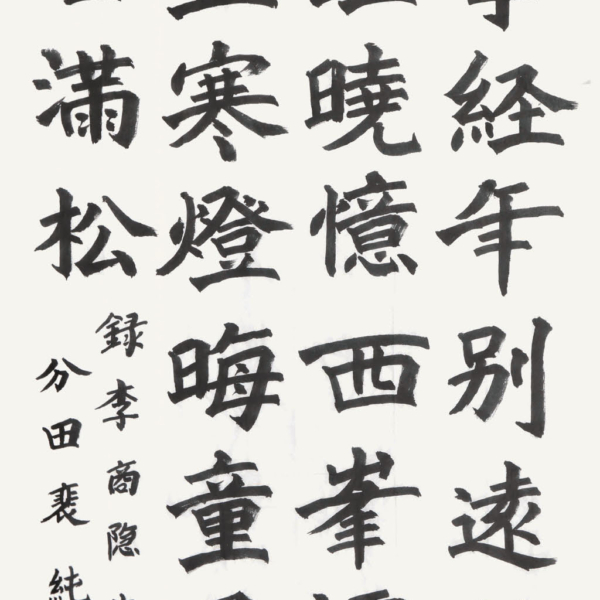 経年別遠
曉憶西峯
寒燈晦童
満松
録李商隠
分田裴純